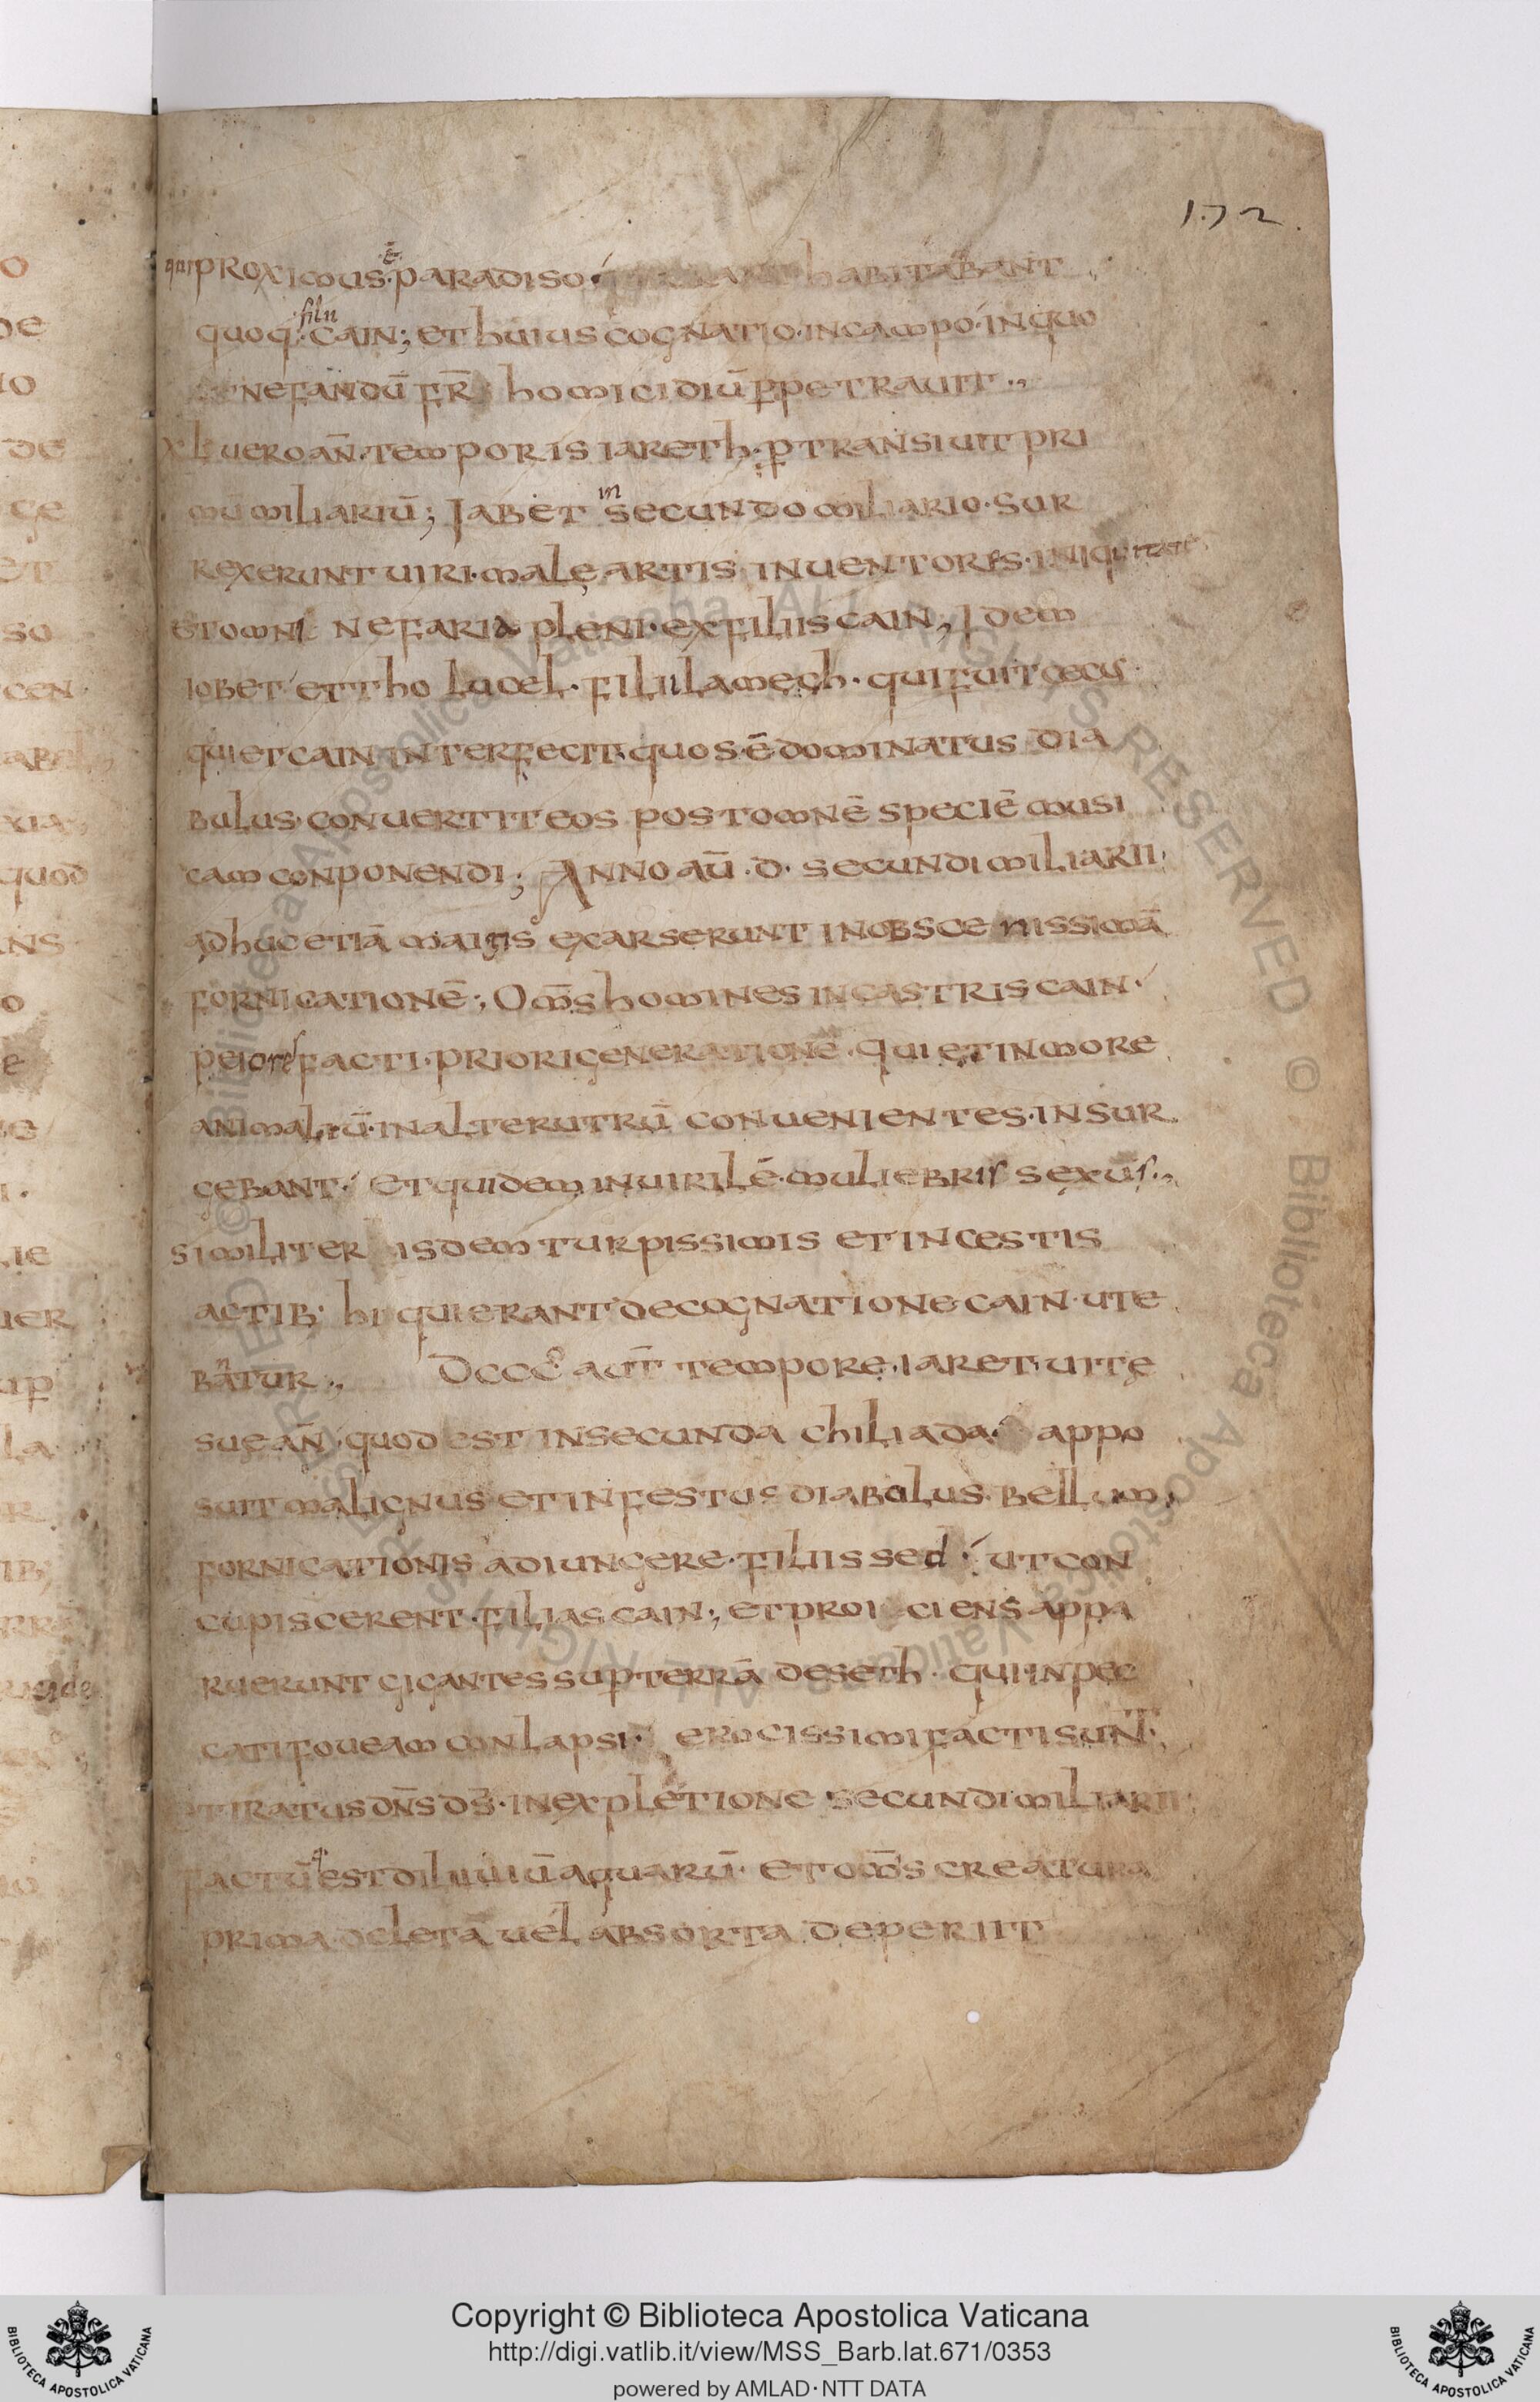 172
qui proximus ē paradiso habitabant
quoq· filii cain; et huius cognatio·in campo·in quo
nefandū fr̄ homicidiū ꝑpetrauit·,
xl uero an̄·temporis iareth·ꝑtransiuit pri
mū miliariū; Jabet in secundo miliario·sur
rexerunt uiri·malę artis inuentores·iniquitatis
et omni nefaria pleni·ex filiis cain, Idem
iobet et tholucel·filii lamech·qui fuit cecus·
qui et cain interfecit·quos·ē dominatus dia
bulus·conuertit eos post omnē speciē musi
cam conponendi; Anno aū·d·secundi miliarii·
adhuc etiā magis exarserunt in obscenissimā
fornicationē; Om̄s homines in castris cain·
peiores facti·priori generationē·qui et in more
animaliū·in alterutrū conuenientes·insur
gebant· et quidem in uirilē·muliebris sexus·,
similiter isdem turpissimis et incestis
actib; hi qui erant de cognatione cain·ute
bantur·, Dccc aut̄ tempore·iaret·uitę
suę an̄ quod est in secunda chiliada· appo
suit malignus et infestus diabolus·bellum
fornicationis adiungere·filiis sed·ut con
cupiscerent·filias cain; et proiciens appa
ruerunt gigantes suꝑ terrā de seth·qui·in pec
cati foueam conlapsi· erocissimi facti sunt·
iratus dn̄s ds̄·in expletione secundi miliarii
factū est diluuiū aquarū·et om̄s creatura
prima deleta uel absorta deperiit
Copyright © Biblioteca Apostolica Vaticana
http://digi.vatlib.it/view/MSS_Barb.lat.671/0353
powered by AMLAD·NTT DATA